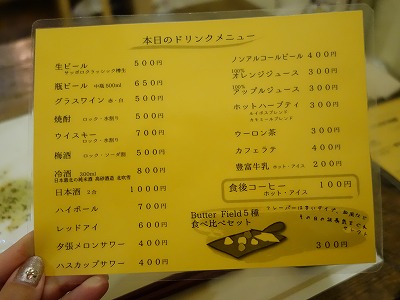 本日のドリンクメニュー
生ビール 500円
サッポロクラシック樽生
瓶ビール 中瓶500ml 650円
グラスワイン 赤・白 500円
焼酎 ロック・水割り 500円
ウイスキー 700円
ロック・水割り
梅酒 ロック・ソーダ割 500円
冷酒 300ml 800円
日本最北の純米酒 北吹雪
日本酒 2合 1000円
ハイボール 700円
レッドアイ 600円
夕張メロンサワー 400円
ハスカップサワー 400円
ノンアルコールビール 400円
100%
オレンジジュース 300円
100%
アップルジュース 300円
ホットハーブティ 300円
ルイボスブレンド
カモミールブレンド
ウーロン茶 300円
カフェラテ 400円
豊富牛乳 ホット・アイス 200円
食後コーヒー 100円
ホット・アイス
Butter Field 5種
食べ比べセット
300円